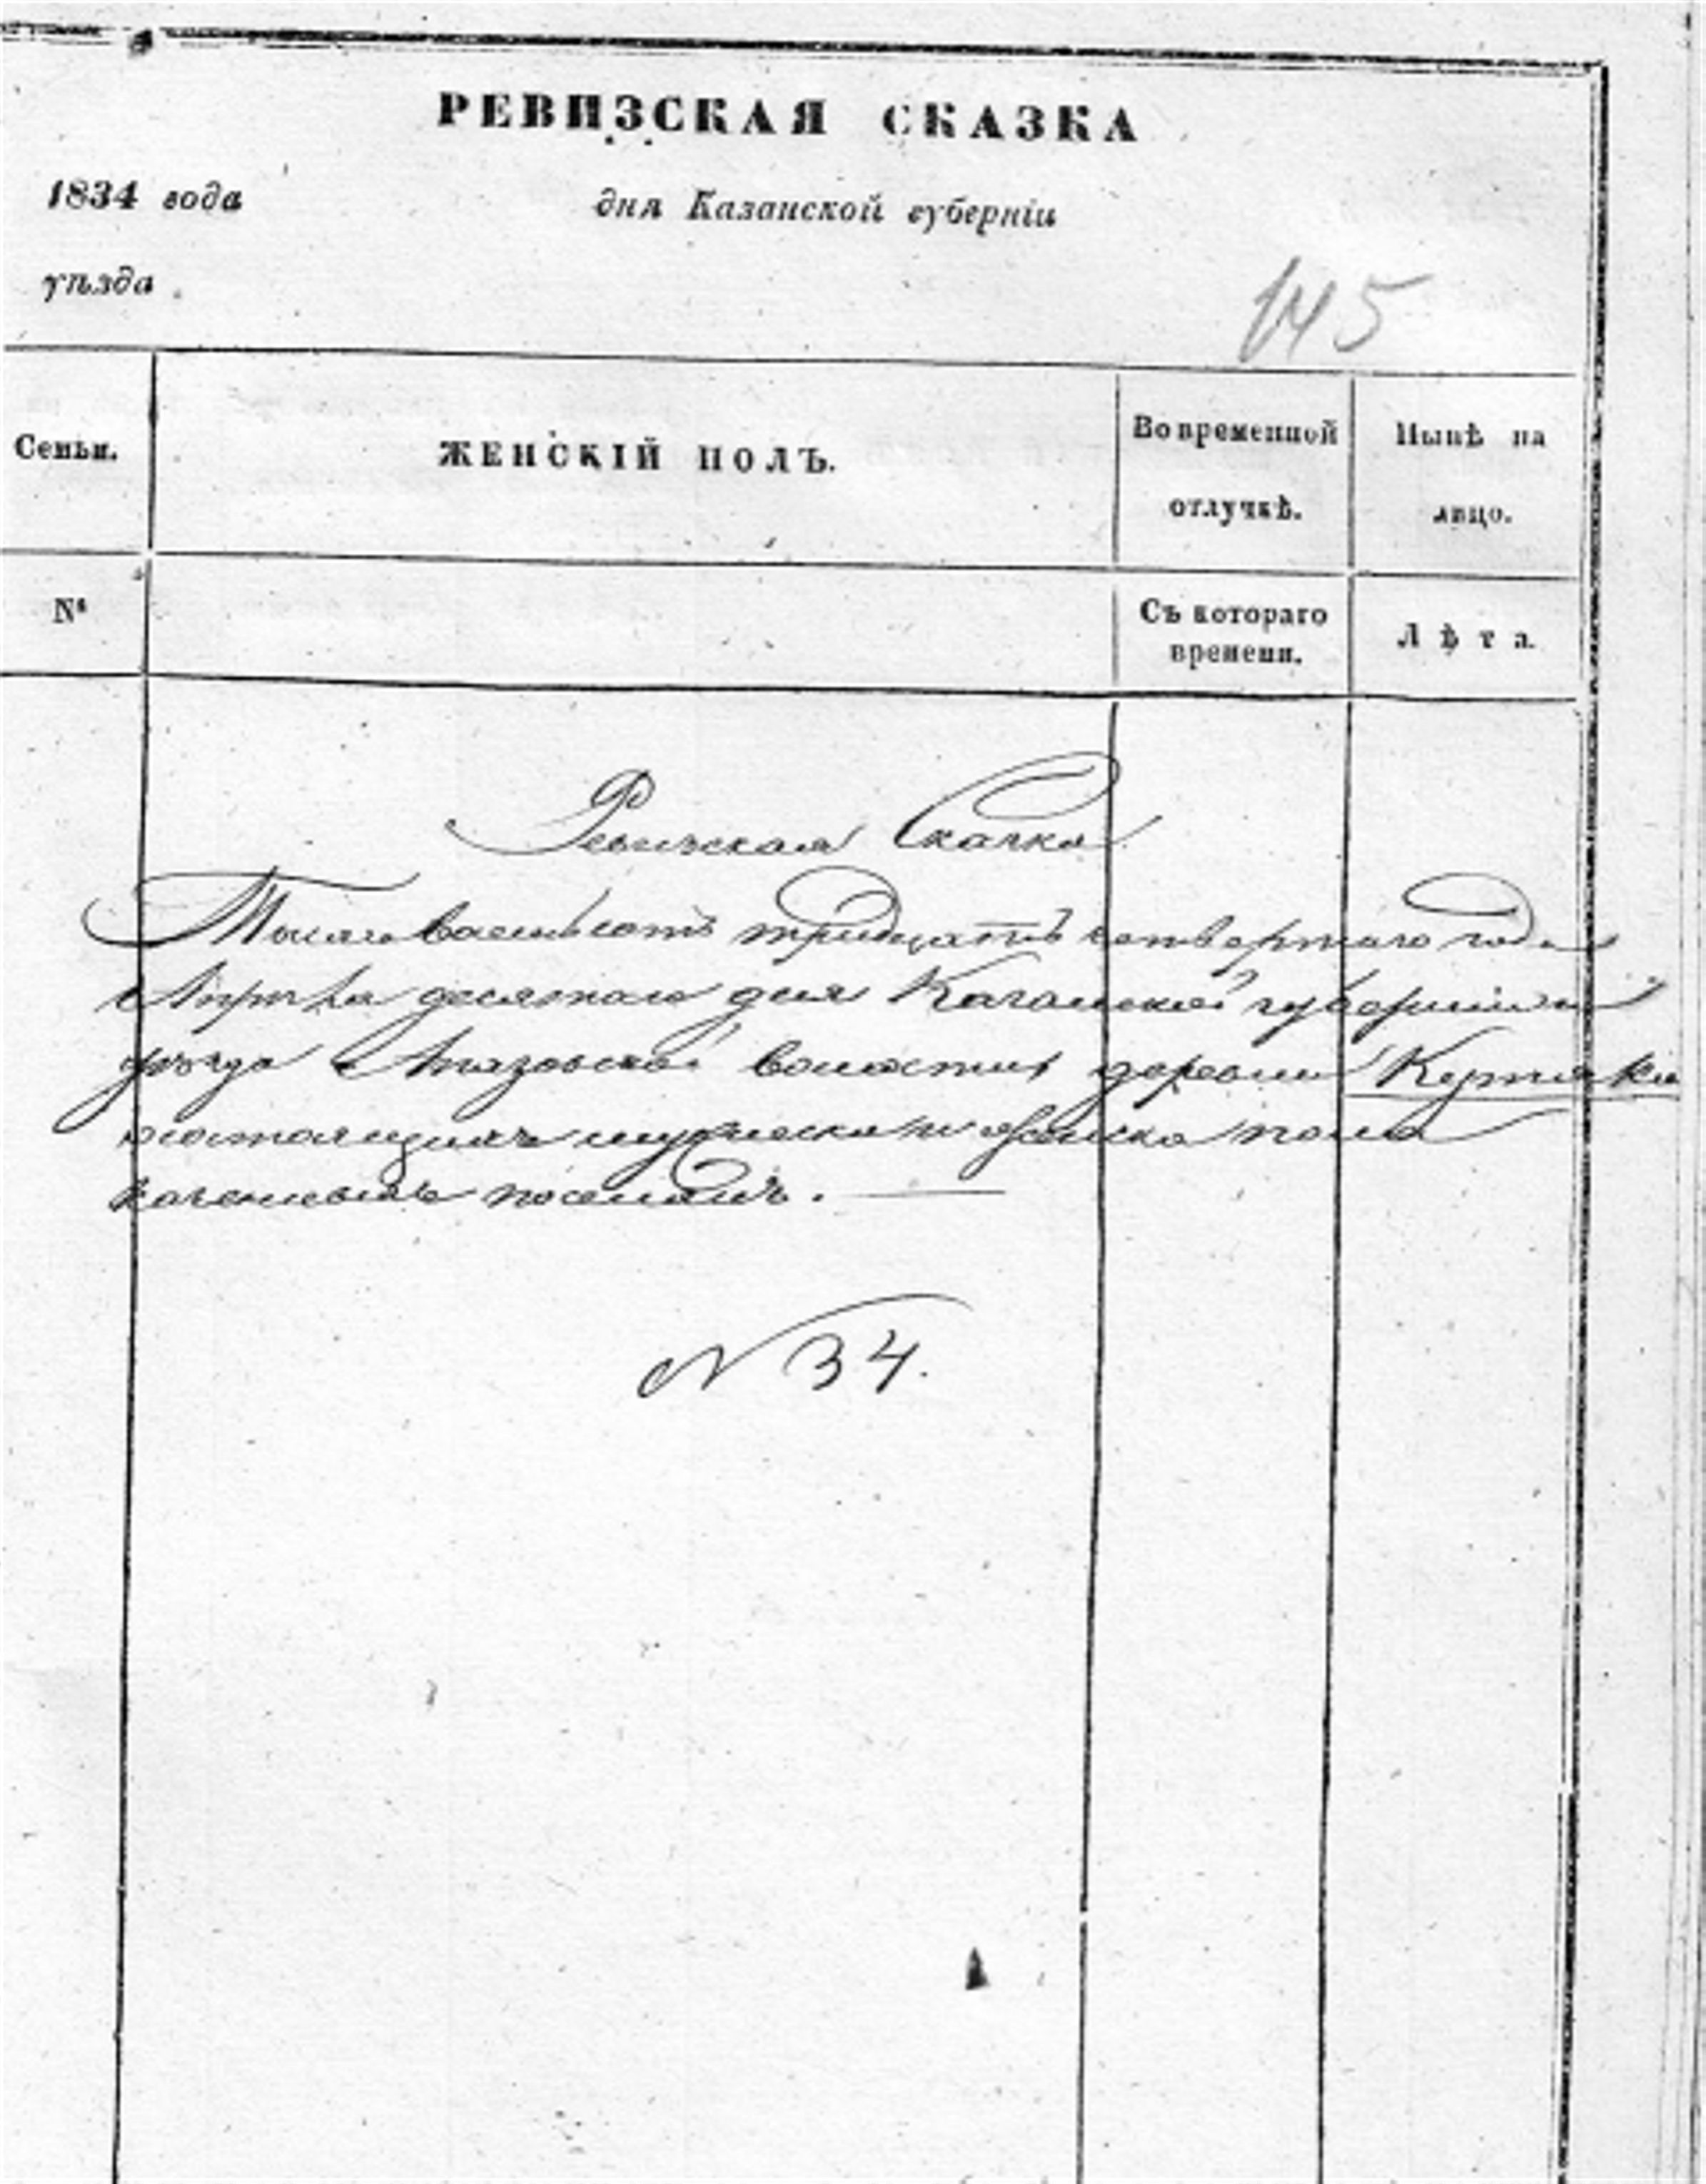 РЕВИЗСКАЯ СКАЗКА
1834 года
дня Казанской губерніи
уѣзда
145
Семьи.
ЖЕНСКІЙ ПОЛЪ.
Во временной отлучкѣ.
Нынѣ на лицо.
№
Съ котораго времени.
Лѣта.
Ревизская Сказка
Тысяча восемьсотъ тридцать четвертаго года
Апрѣля десятаго дня Казанской губерніи и
уѣзда волости деревни
состоящихъ мужеска и женска пола
казенныхъ поселянъ.
№ 34.